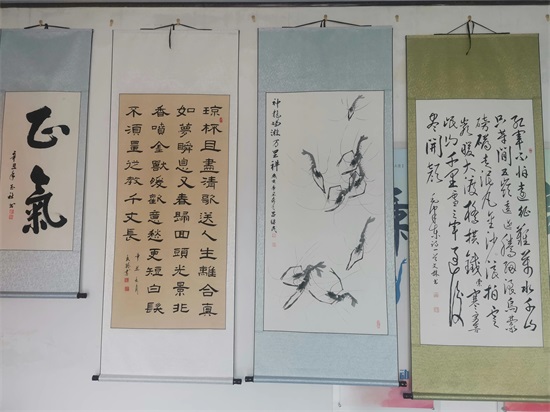 正氣
辛丑年
琼杯且盡清歌送人生離合真
如夢瞬息又春歸回頭光景非
香噴金獸暖歡意愁更短白髮
不須量從教千丈長
红軍不怕远征難萬水千山
只等闲五嶺逶迤腾细浪乌蒙
磅礴走泥丸金沙浪拍雲
崖暖大渡橋横鐵索寒更喜
岷山千里雪三軍过后
尽開颜